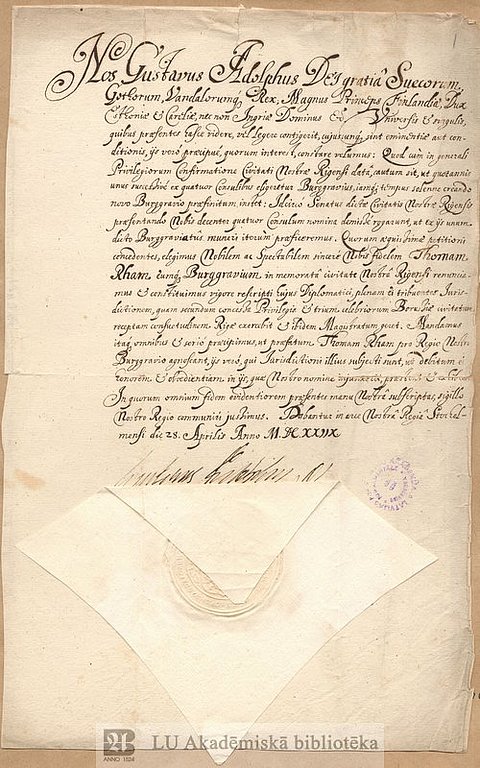 Nos Gustavus Adolphus DEI gratiâ Suecorum,
Gothorum, Vandalorumq, Rex, Magnus Princeps Finlandiæ, Dux
Esthoniæ et Careliæ, nec non Ingriæ Dominus &c, Universis et singulis,
quibus præsentes hasce videre, vel legere contigerit, cujuscunq sint eminentiæ aut con-
ditionis, ijs vero præcipuè, quorum interest, constare volumus: Quod cum in generali
Privilegiorum Confirmatione Civitati Nostræ Rigensi data, cautum sit, ut quotannis
unus successivè ex quatuor Consulibus eligeretur Burggravius, jamq, tempus solenne creando
novo Burggravio præfinitum, instet: Idcirò Senatus dictæ Civitatis Nostræ Rigensis
præsentando Nobis decenter quatuor Consulum nomina demissè rogarunt, ut ex ijs unum
dicto Burggraviatus muneri iterum præficeremus. Quorum æquissimæ petitioni
concedentes, elegimus Nobilem ac Spectabilem sincerè Nobis fidelem Thomam
Rham, eumq, Burggravium, in memorata civitate Nostrâ Rigensi renuncia-
mus & constituimus vigore rescripti hujus Diplomatici, plenam ei tribuentes Juris-
dictionem, quam secundum concessa Privilegia & trium celebriorum Borussiæ civitatum
receptam consuetudinem Rigæ exercebit & ibidem Magistratum geret. Mandamus
itaq, omnibus & serio præcipimus, ut præfatum Thomam Rham pro Regio Nostro
Burggravio agnoscant, ijs vero, qui Jurisdictioni illius subjecti sunt, ut debitum ei
honorem & obedientiam, in ijs, quæ Nostro nomine
In quorum omnium fidem evidentiorem præsentes manu Nostrâ subscriptas, sigillo
Nostro Regio communiri jussimus. Dabantur in arce Nostrâ Regiâ Stockol-
mensi die 28. Aprilis Anno
Gustavus Adolphus
LU Akadēmiskā bibliotēka
ANNO 1524